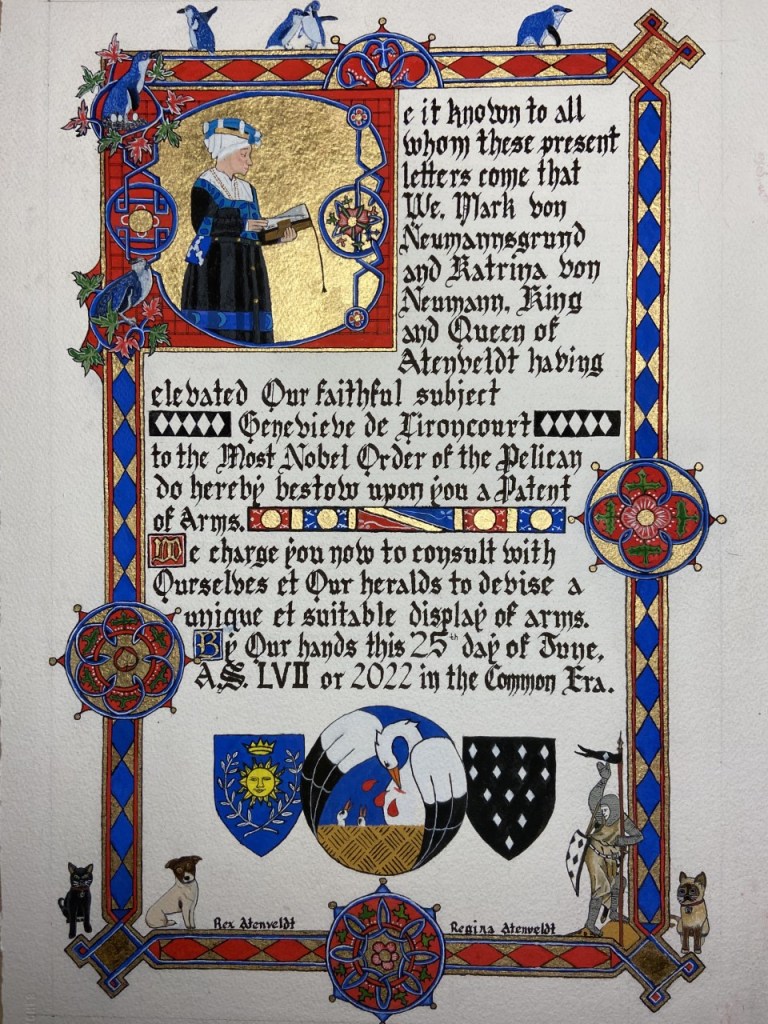 Be it known to all
whom these present
letters come that
We, Mark von
Neumannsgrund
and Katrina von
Neumann, King
and Queen of
Atenveldt having
elevated Our faithful subject
Genevieve de Lironcourt
to the Most Nobel Order of the Pelican
do hereby bestow upon you a Patent
of Arms.
We charge you now to consult with
Ourselves et Our heralds to devise a
unique et suitable display of arms.
By Our hands this 25th day of June,
A.S. LVII or 2022 in the Common Era.
Rex Atenveldt
Regina Atenveldt